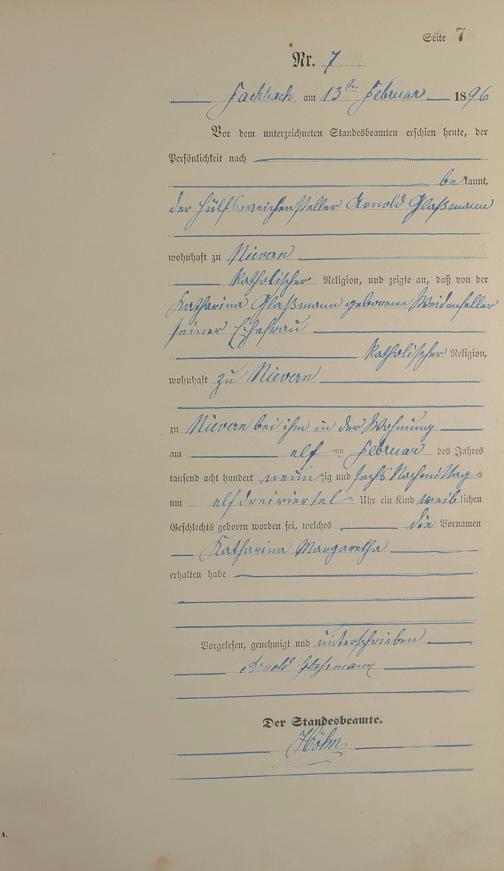 Seite 7
Nr. 7
Fachbach am 13ten Februar 1896
Vor dem unterzeichneten Standesbeamten erschien heute, der
Persönlichkeit nach
bekannt,
der Hülfsweichensteller Arnold Glaßmann
wohnhaft zu Nievern
katholischer Religion, und zeigte an, daß von der
Katharina Glaßmann geborenen Weidenfeller
seiner Ehefrau
katholischer Religion,
wohnhaft zu Nievern
zu Nievern bei ihm in der Wohnung
am elf ten Februar des Jahres
tausend acht hundert neunzig und sechs Nachmittags
um elfdreiviertel Uhr ein Kind weiblichen
Geschlechts geboren worden sei, welches die Vornamen
Katharina Margaretha
erhalten habe
Vorgelesen, genehmigt und unterschrieben
Arnold Glaßmann
Der Standesbeamte.
Höhn
A.